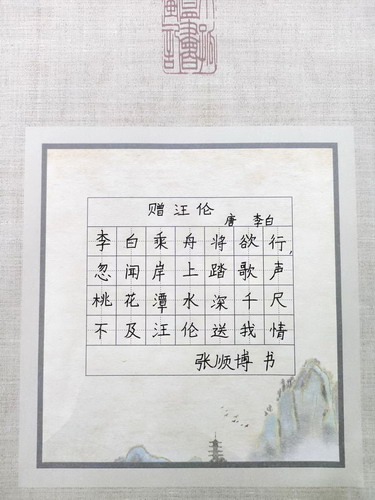 赠汪伦
唐 李白
李白乘舟将欲行,
忽闻岸上踏歌声
桃花潭水深千尺
不及汪伦送我情
张顺博 书